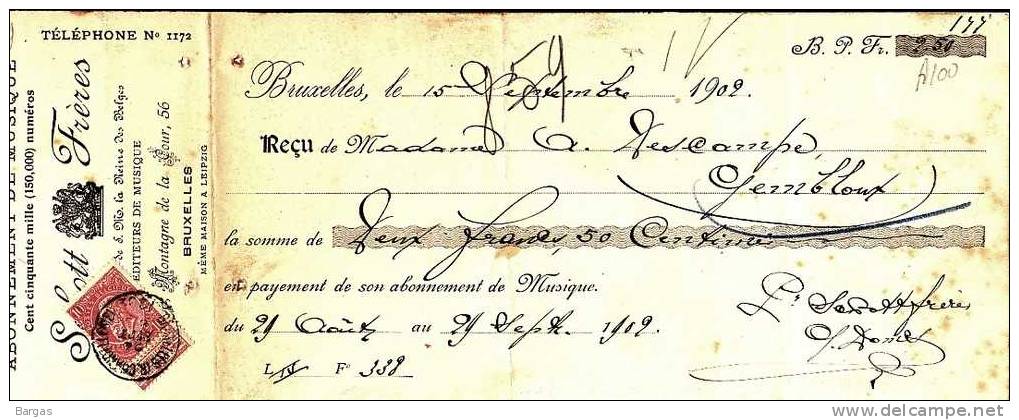 ABONNEMENT DE MUSIQUE
Cent cinquante mille (150,000) numéros
Schott Frères
de S. M. la Reine des Belges
ÉDITEURS DE MUSIQUE
Montagne de la Cour, 56
BRUXELLES
MÊME MAISON A LEIPZIG
TÉLÉPHONE No 1172
177
B. P. Fr. 2 50
A100
Bruxelles, le 15 Septembre 1902.
Reçu de Madame A. Descampe,
Gembloux
la somme de Deux francs, 50 Centimes
en payement de son abonnement de Musique.
du 29 Août au 29 Sept. 1902
Pr Schott frères
L IV Fo 338
Bargas
delcampe.net